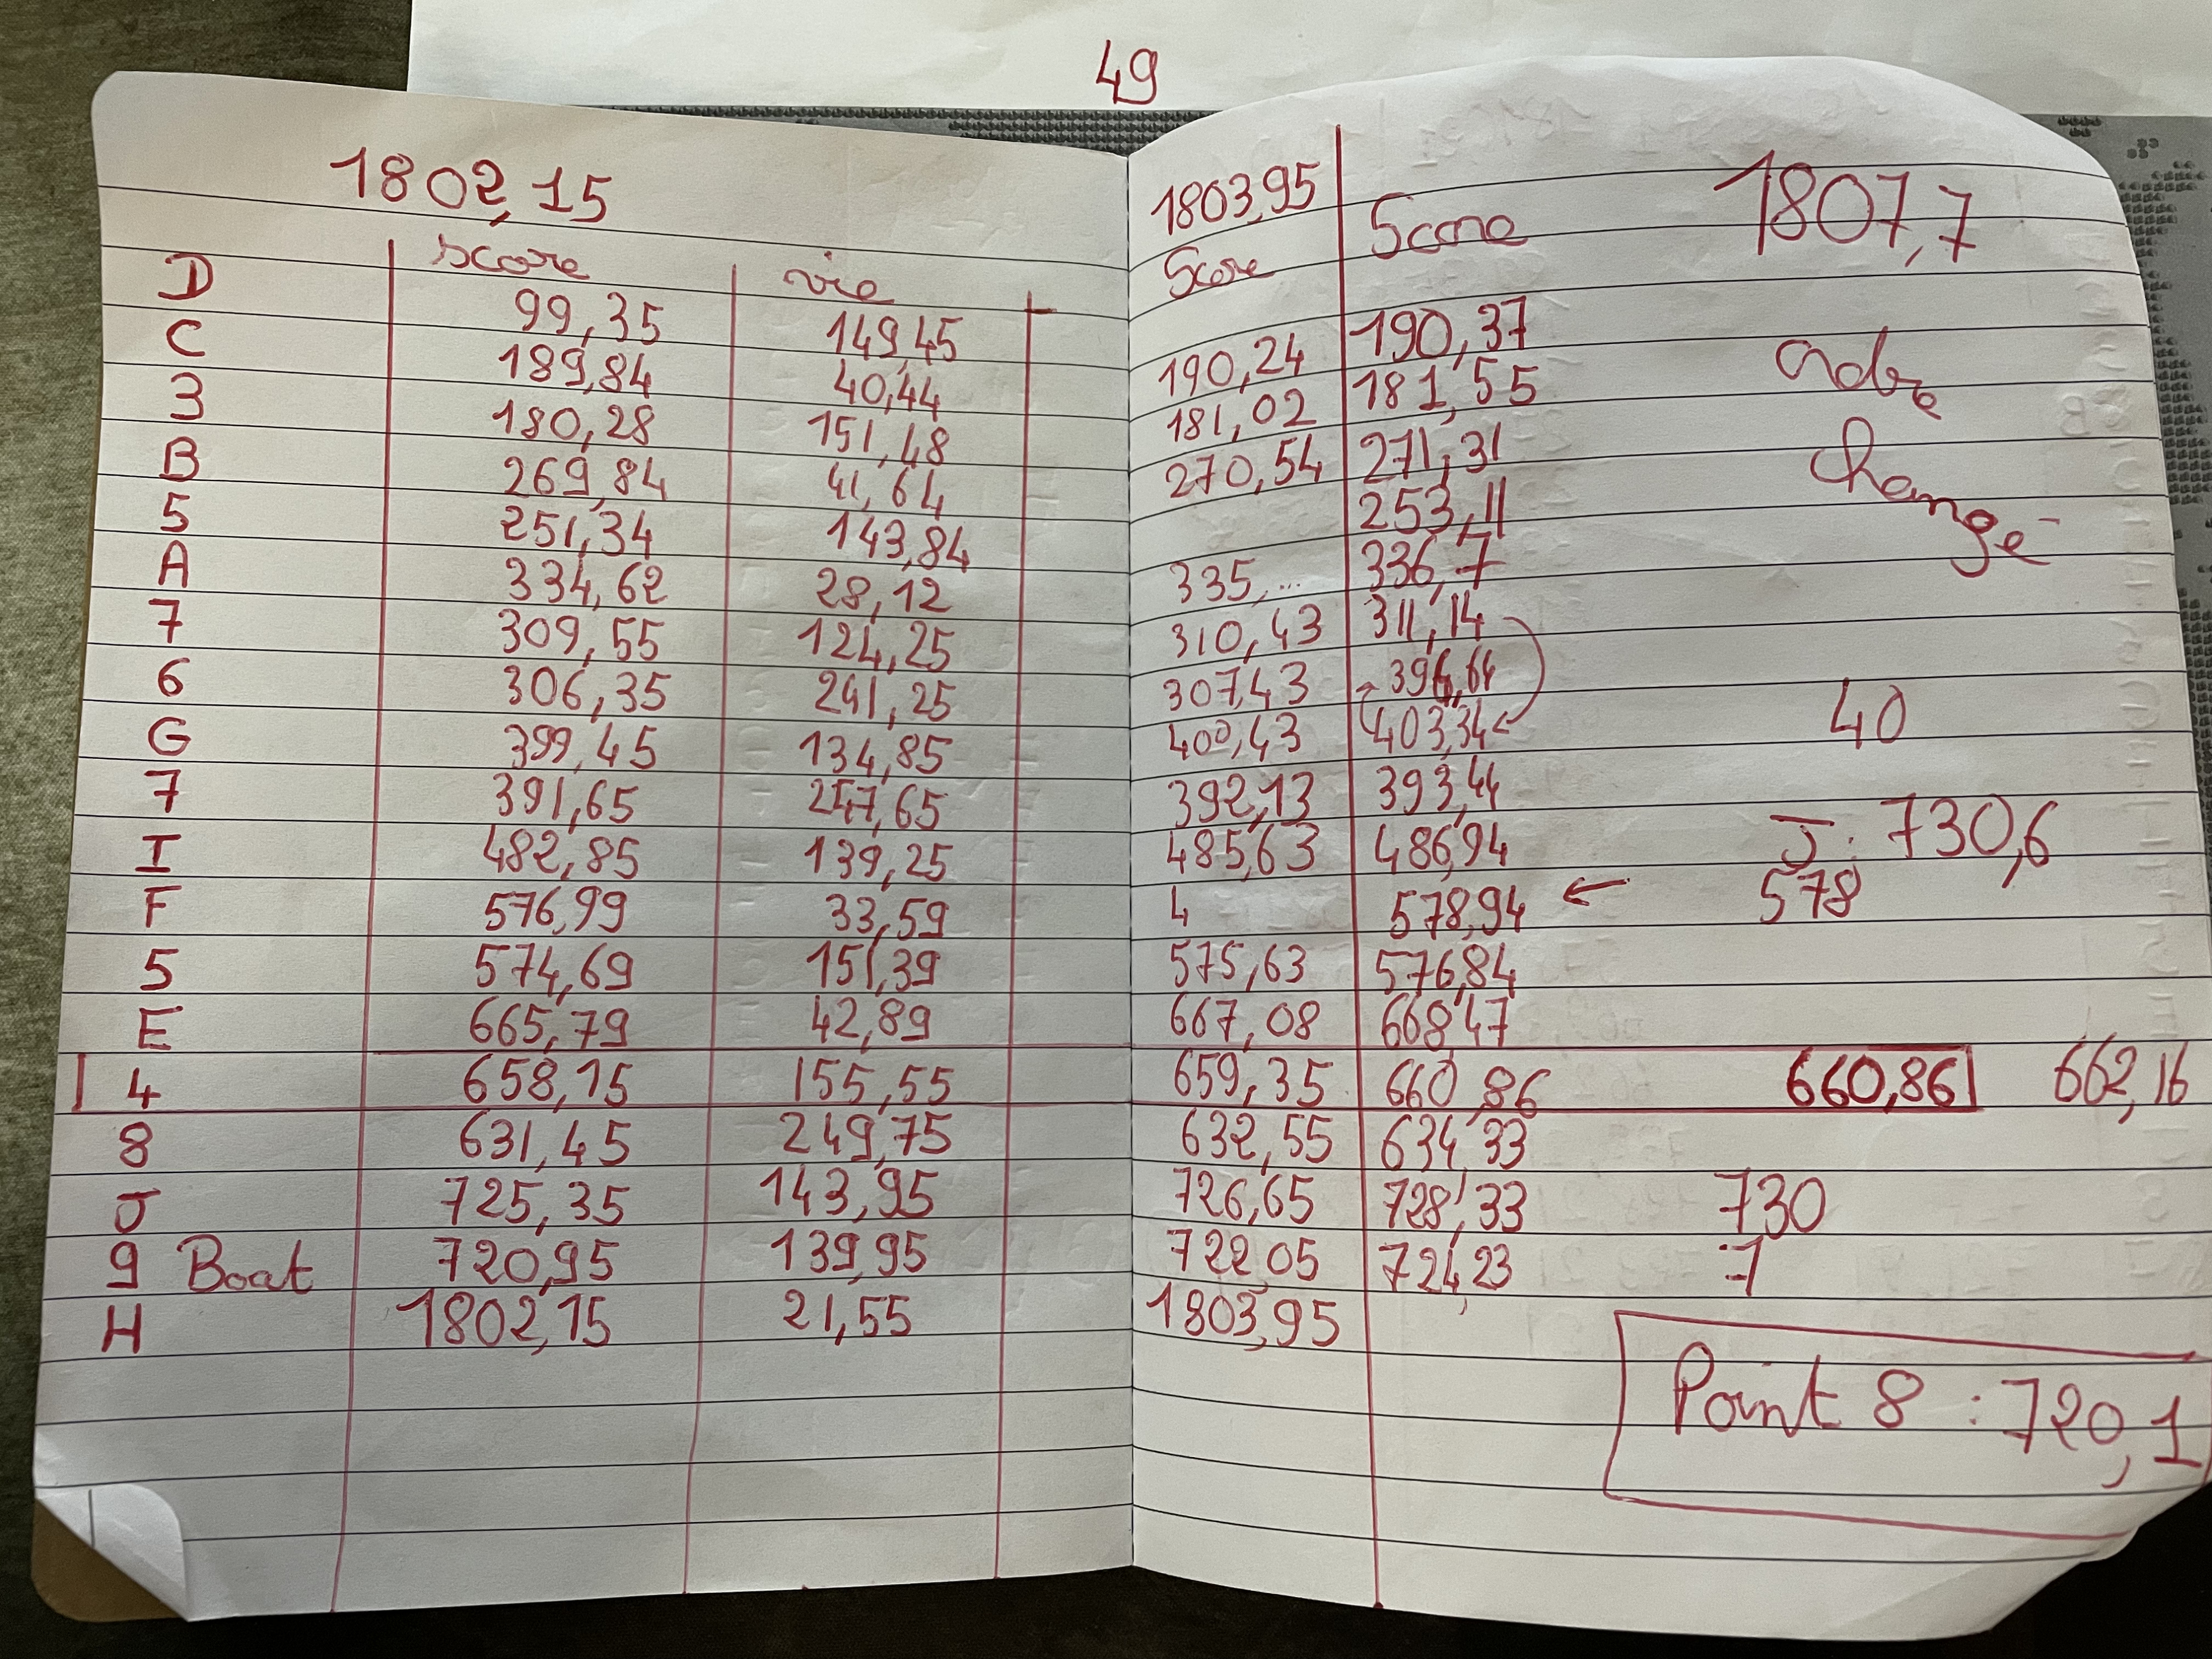 49
1802,15
score vie
D 99,35 149,45
C 189,84 40,44
3 180,28 151,48
B 269,84 41,64
5 251,34 143,84
A 334,62 28,12
7 309,55 124,25
6 306,35 241,25
G 399,45 134,85
7 391,65 247,65
I 482,85 139,25
F 576,99 33,59
5 574,69 151,39
E 665,79 42,89
4 658,15 155,55
8 631,45 249,75
J 725,35 143,95
9 Boat 720,95 139,95
H 1802,15 21,55
1803,95 1807,7
Score Score
190,24 190,37
181,02 181,55
270,54 271,31
253,11
335,... 336,7
310,43 311,14
307,43 396,64
400,43 403,34
392,13 393,44
485,63 486,94
4 578,94 ← 578
575,63 576,84
667,08 668,47
659,35 660,86 660,86 662,16
632,55 634,33
726,65 728,33 730
722,05 724,23
1803,95
ordre
changé
40
J: 730,6
Point 8 : 720,1